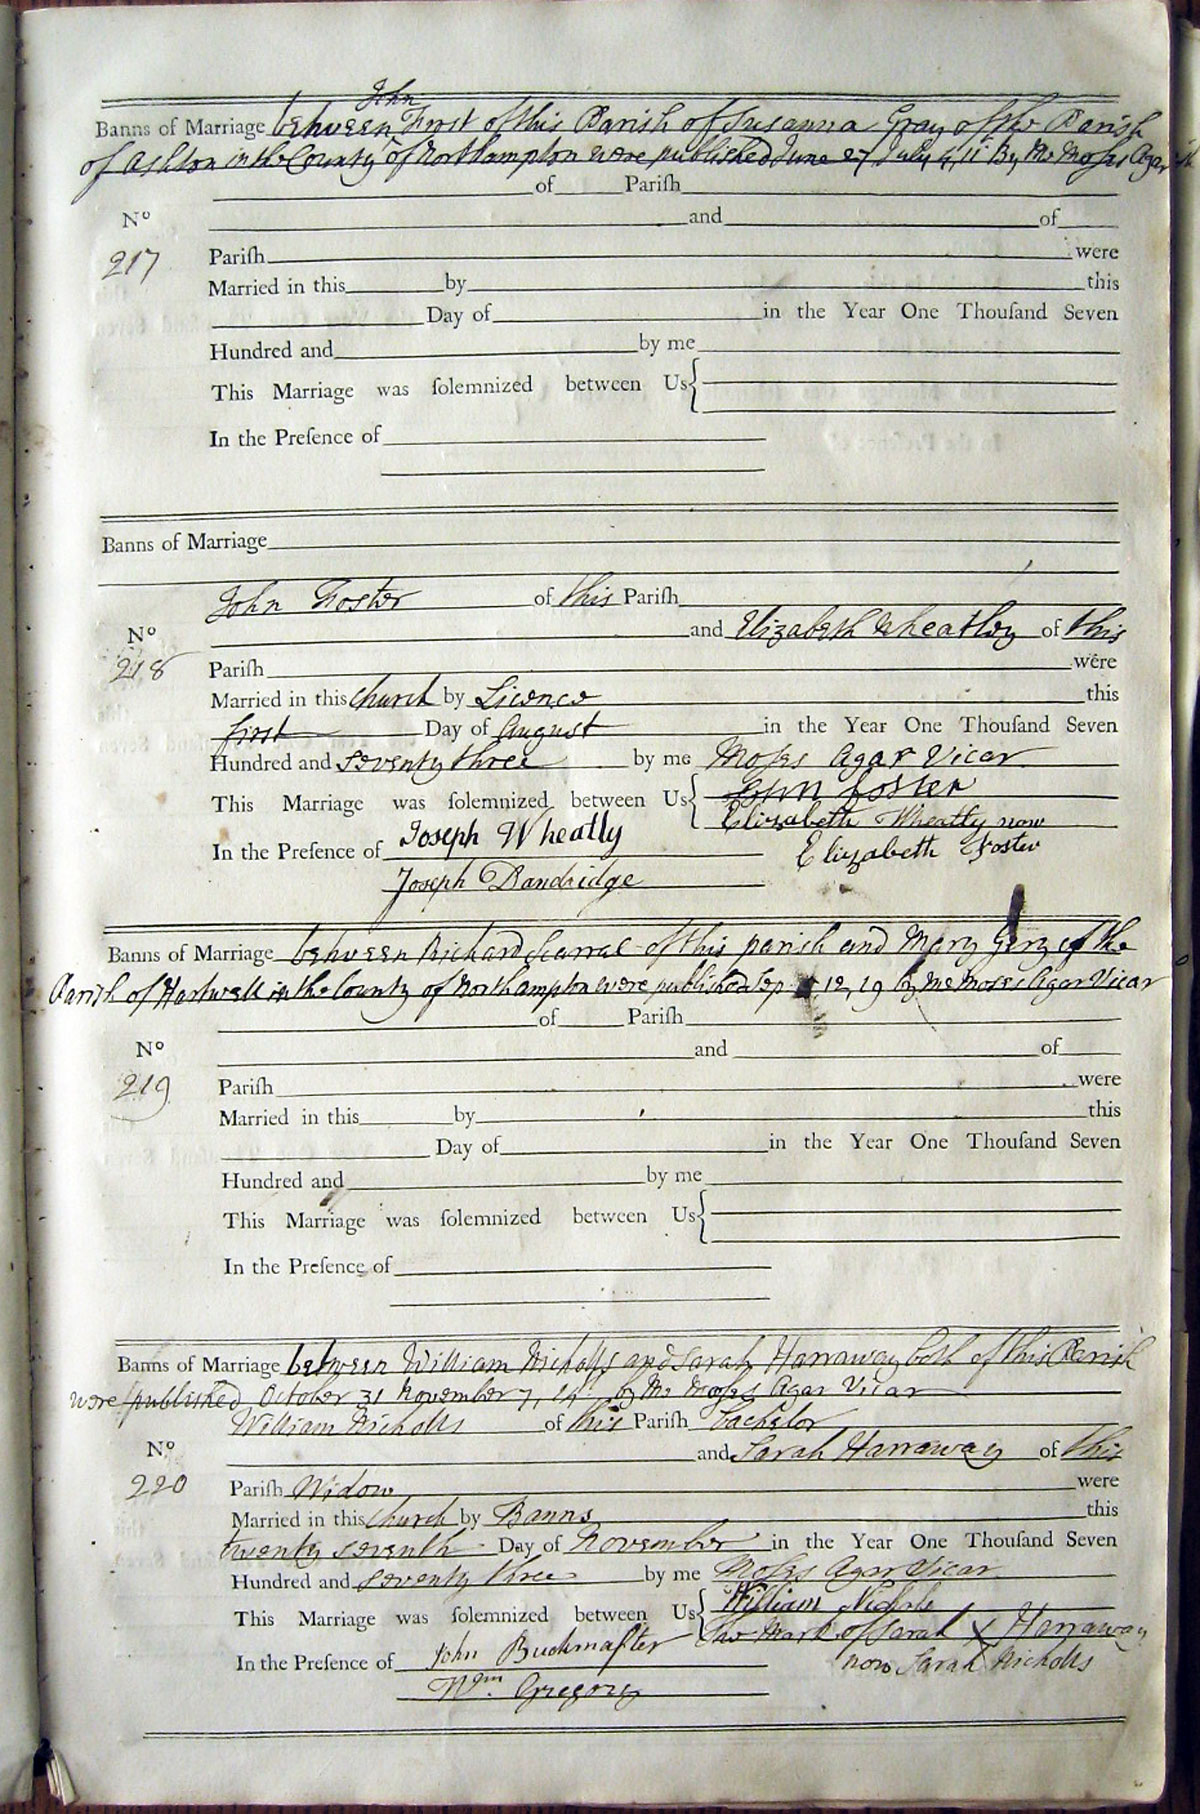 John
Banns of Marriage between Frost of this Parish of Susanna Gray of the Parish
of Ashton in the County of Northampton were published June 27 July 4, 11 By Me Moses Agar
of Pariſh
Nº and of
217 Pariſh were
Married in this by this
Day of in the Year One Thouſand Seven
Hundred and by me
This Marriage was ſolemnized between Us
In the Preſence of
Banns of Marriage
John Foster of this Pariſh
Nº and Elizabeth Wheatley of this
218 Pariſh were
Married in this Church by Licence this
first Day of August in the Year One Thouſand Seven
Hundred and seventy three by me Moses Agar Vicar
This Marriage was ſolemnized between Us John Foster
Elizabeth Wheatly now
In the Preſence of Joseph Wheatly Elizabeth Foster
Joseph Dandridge
Banns of Marriage between Richard Scarral of this parish and Mary Gery of the
Parish of Hartwell in the County of Northampton were published Sep 12, 19 by me Moses Agar Vicar
of Pariſh
Nº and of
219 Pariſh were
Married in this by this
Day of in the Year One Thouſand Seven
Hundred and by me
This Marriage was ſolemnized between Us
In the Preſence of
Banns of Marriage between William Nicholls and Sarah Harraway both of this Parish
were published October 31 November 7, 14 by Me Moses Agar Vicar
William Nicholls of this Pariſh bachelor
Nº and Sarah Harraway of this
220 Pariſh Widow were
Married in this Church by Banns this
twenty seventh Day of November in the Year One Thouſand Seven
Hundred and seventy three by me Moses Agar Vicar
This Marriage was ſolemnized between Us William Nichols
The Mark of Sarah X Harraway
In the Preſence of John Buckmaſter now Sarah Nicholls
Wm. Gregory